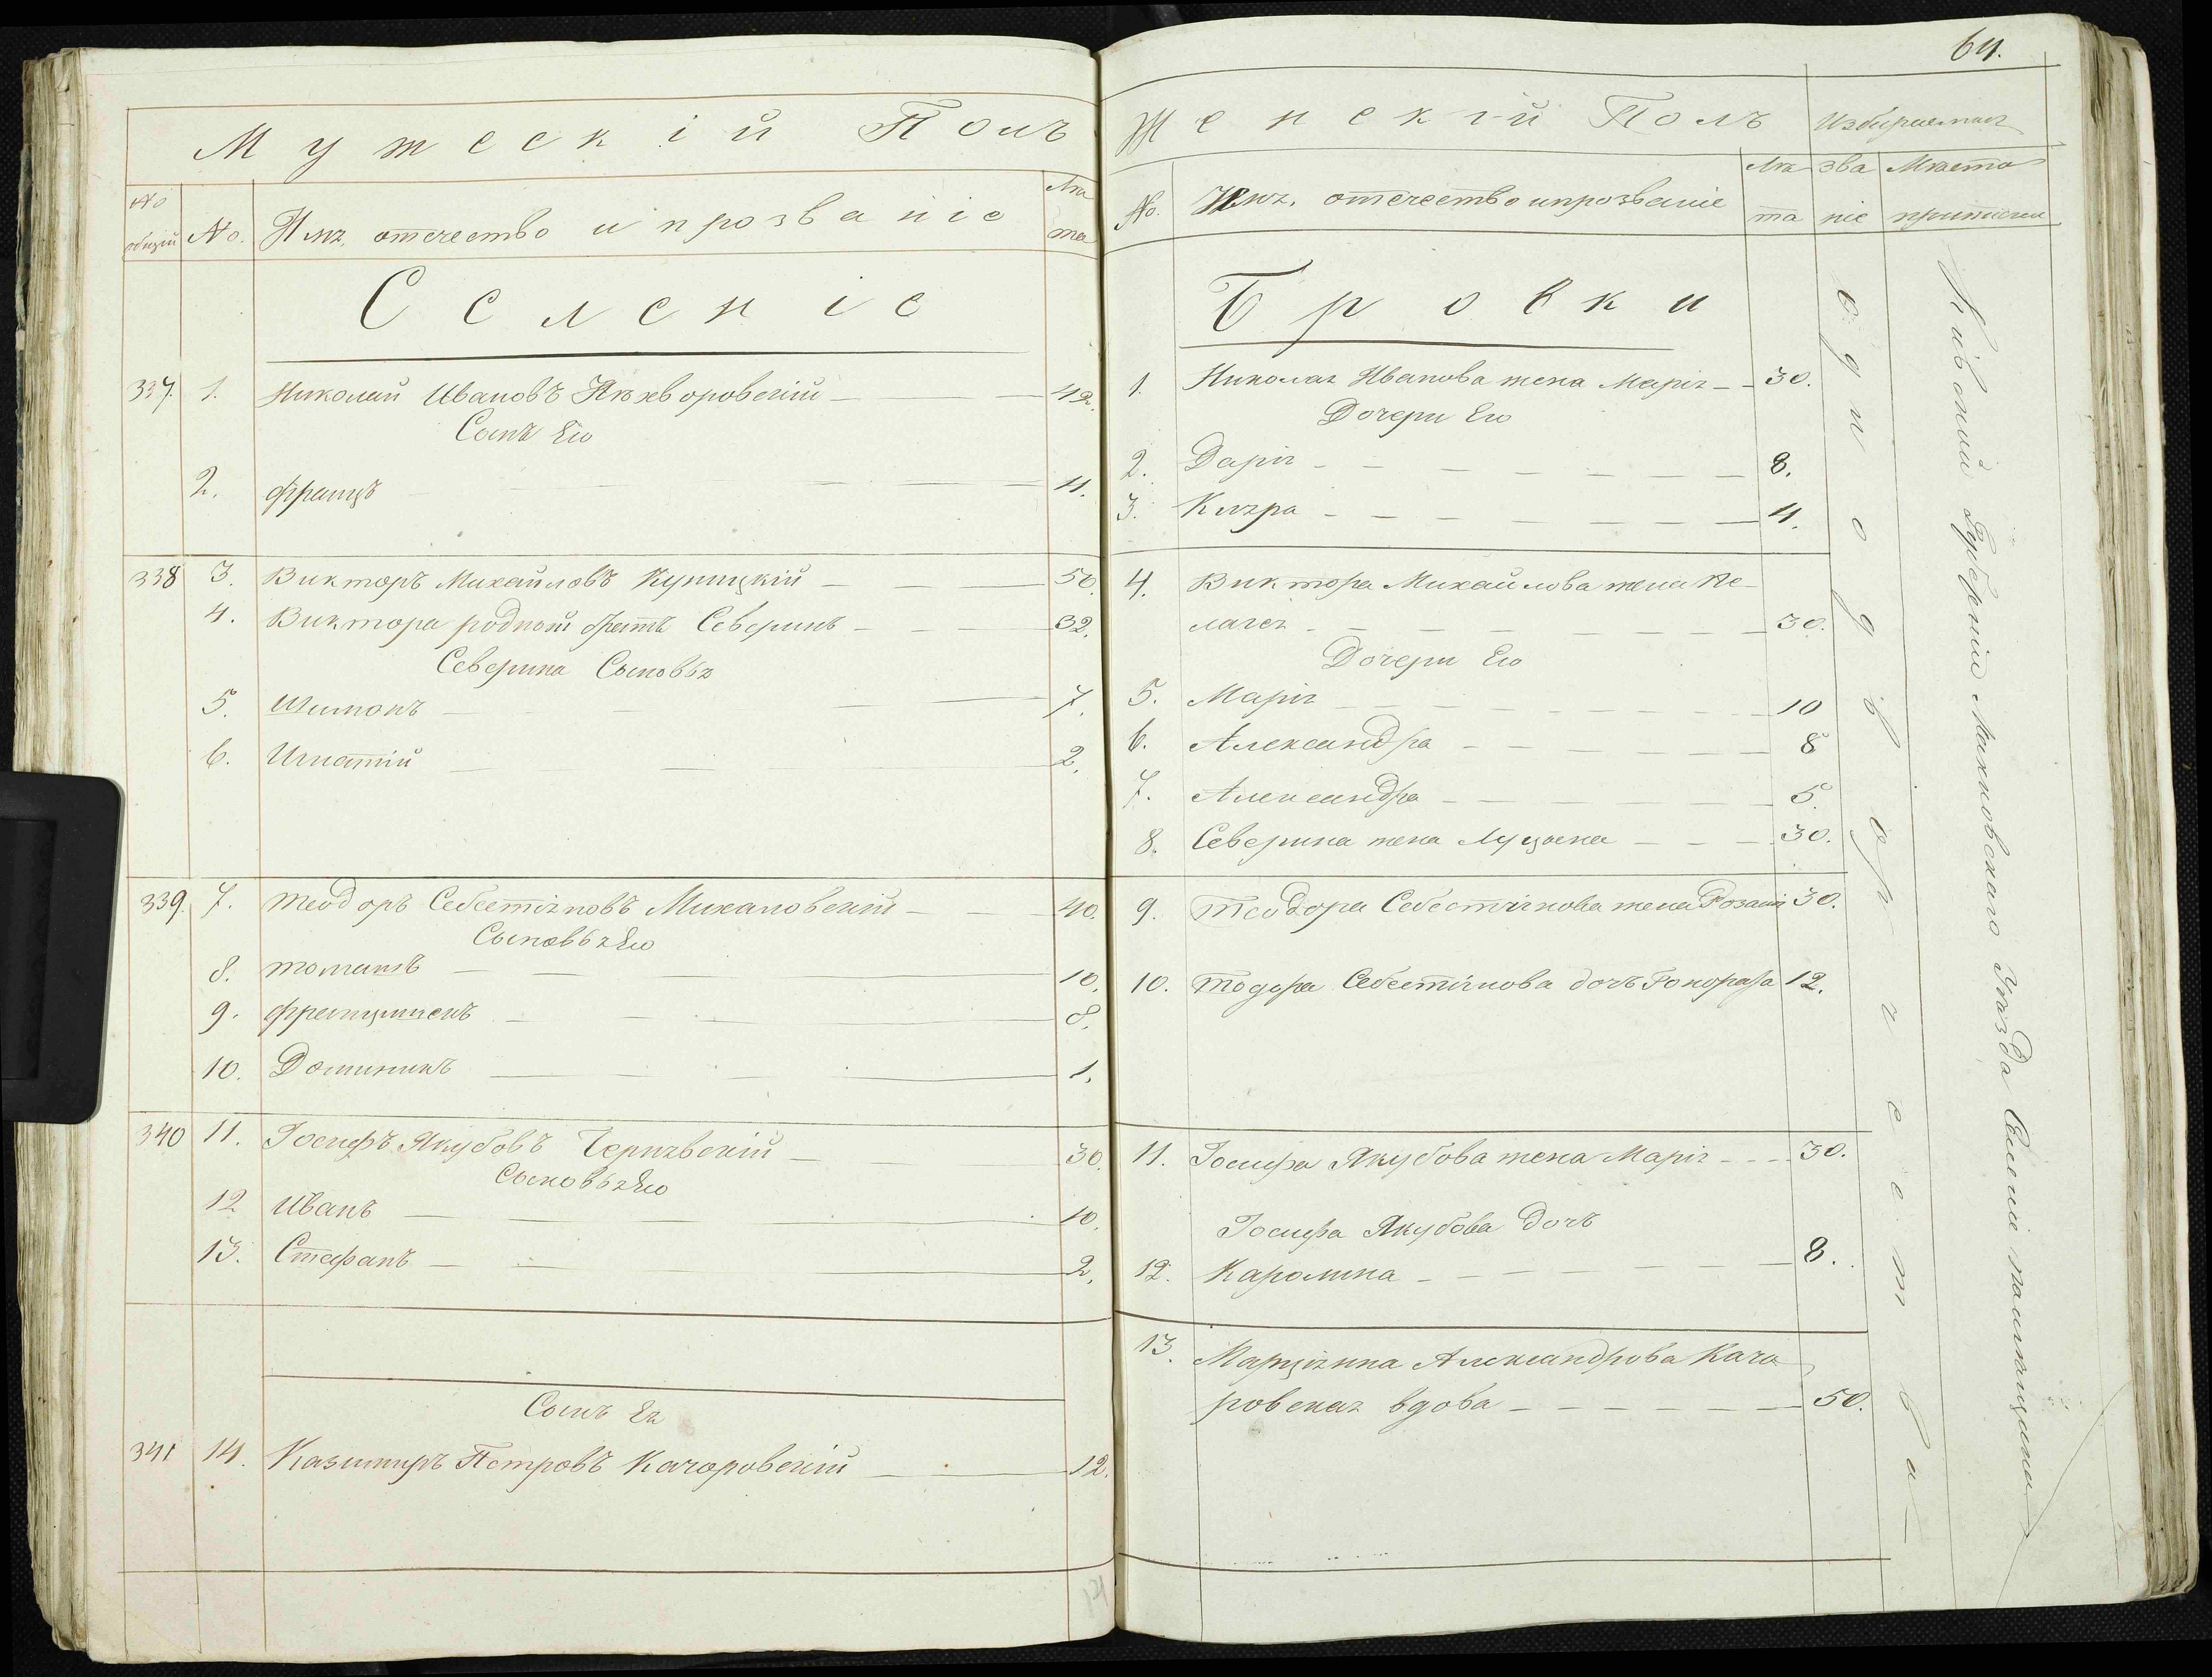 64.
Мужескій Полъ
No общій
No.
Имя, отечество и прозваніе
Лѣта
Селеніе
337. 1. Николай Ивановъ 42.
Сынъ Его
2. Францъ 4.
338 3. Викторъ Михайловъ Куницкій 50.
4. Виктора родной братъ Северинъ 32.
Северина Сыновья
5. Шимонъ 7.
6. Игнатій 2.
339. 7. Теодоръ Себестіяновъ Михаловскій 40.
Сыновья Его
8. Томашъ 10.
9. Францишекъ 8.
10. Доминикъ 1.
340 11. Іосифъ Якубовъ Чернявскій 30.
Сыновья Его
12 Иванъ 10.
13. Стефанъ 2.
Сынъ Ея
341 14. Казимиръ Петровъ Качоровскій 12.
Женскій Полъ
Избираемая
No.
Имя, отечество и прозваніе
Лѣта
званіе
Мѣсто приписки
Бровки
1. Николая Иванова жена Марія 30.
Дочери Его
2. Дарія 8.
3. Кляра 4.
4. Виктора Михайлова жена Пе-
лагея 30.
Дочери Его
5. Марія 10
6. Александра 8
7. Александра 5.
8. Северина жена Луцыя 30.
9. Теодора Себестіянова жена Розалія 30.
10. Тодора Себестіянова дочъ 12.
11. Іосифа Якубова жена Марія 30.
Іосифа Якубова дочъ
12. Каролина 8.
13. Марціянна Александрова Качо
ровская вдова 50.
однодворчества
Кіевской Губерніи Махновскаго Уѣзда Селеніи